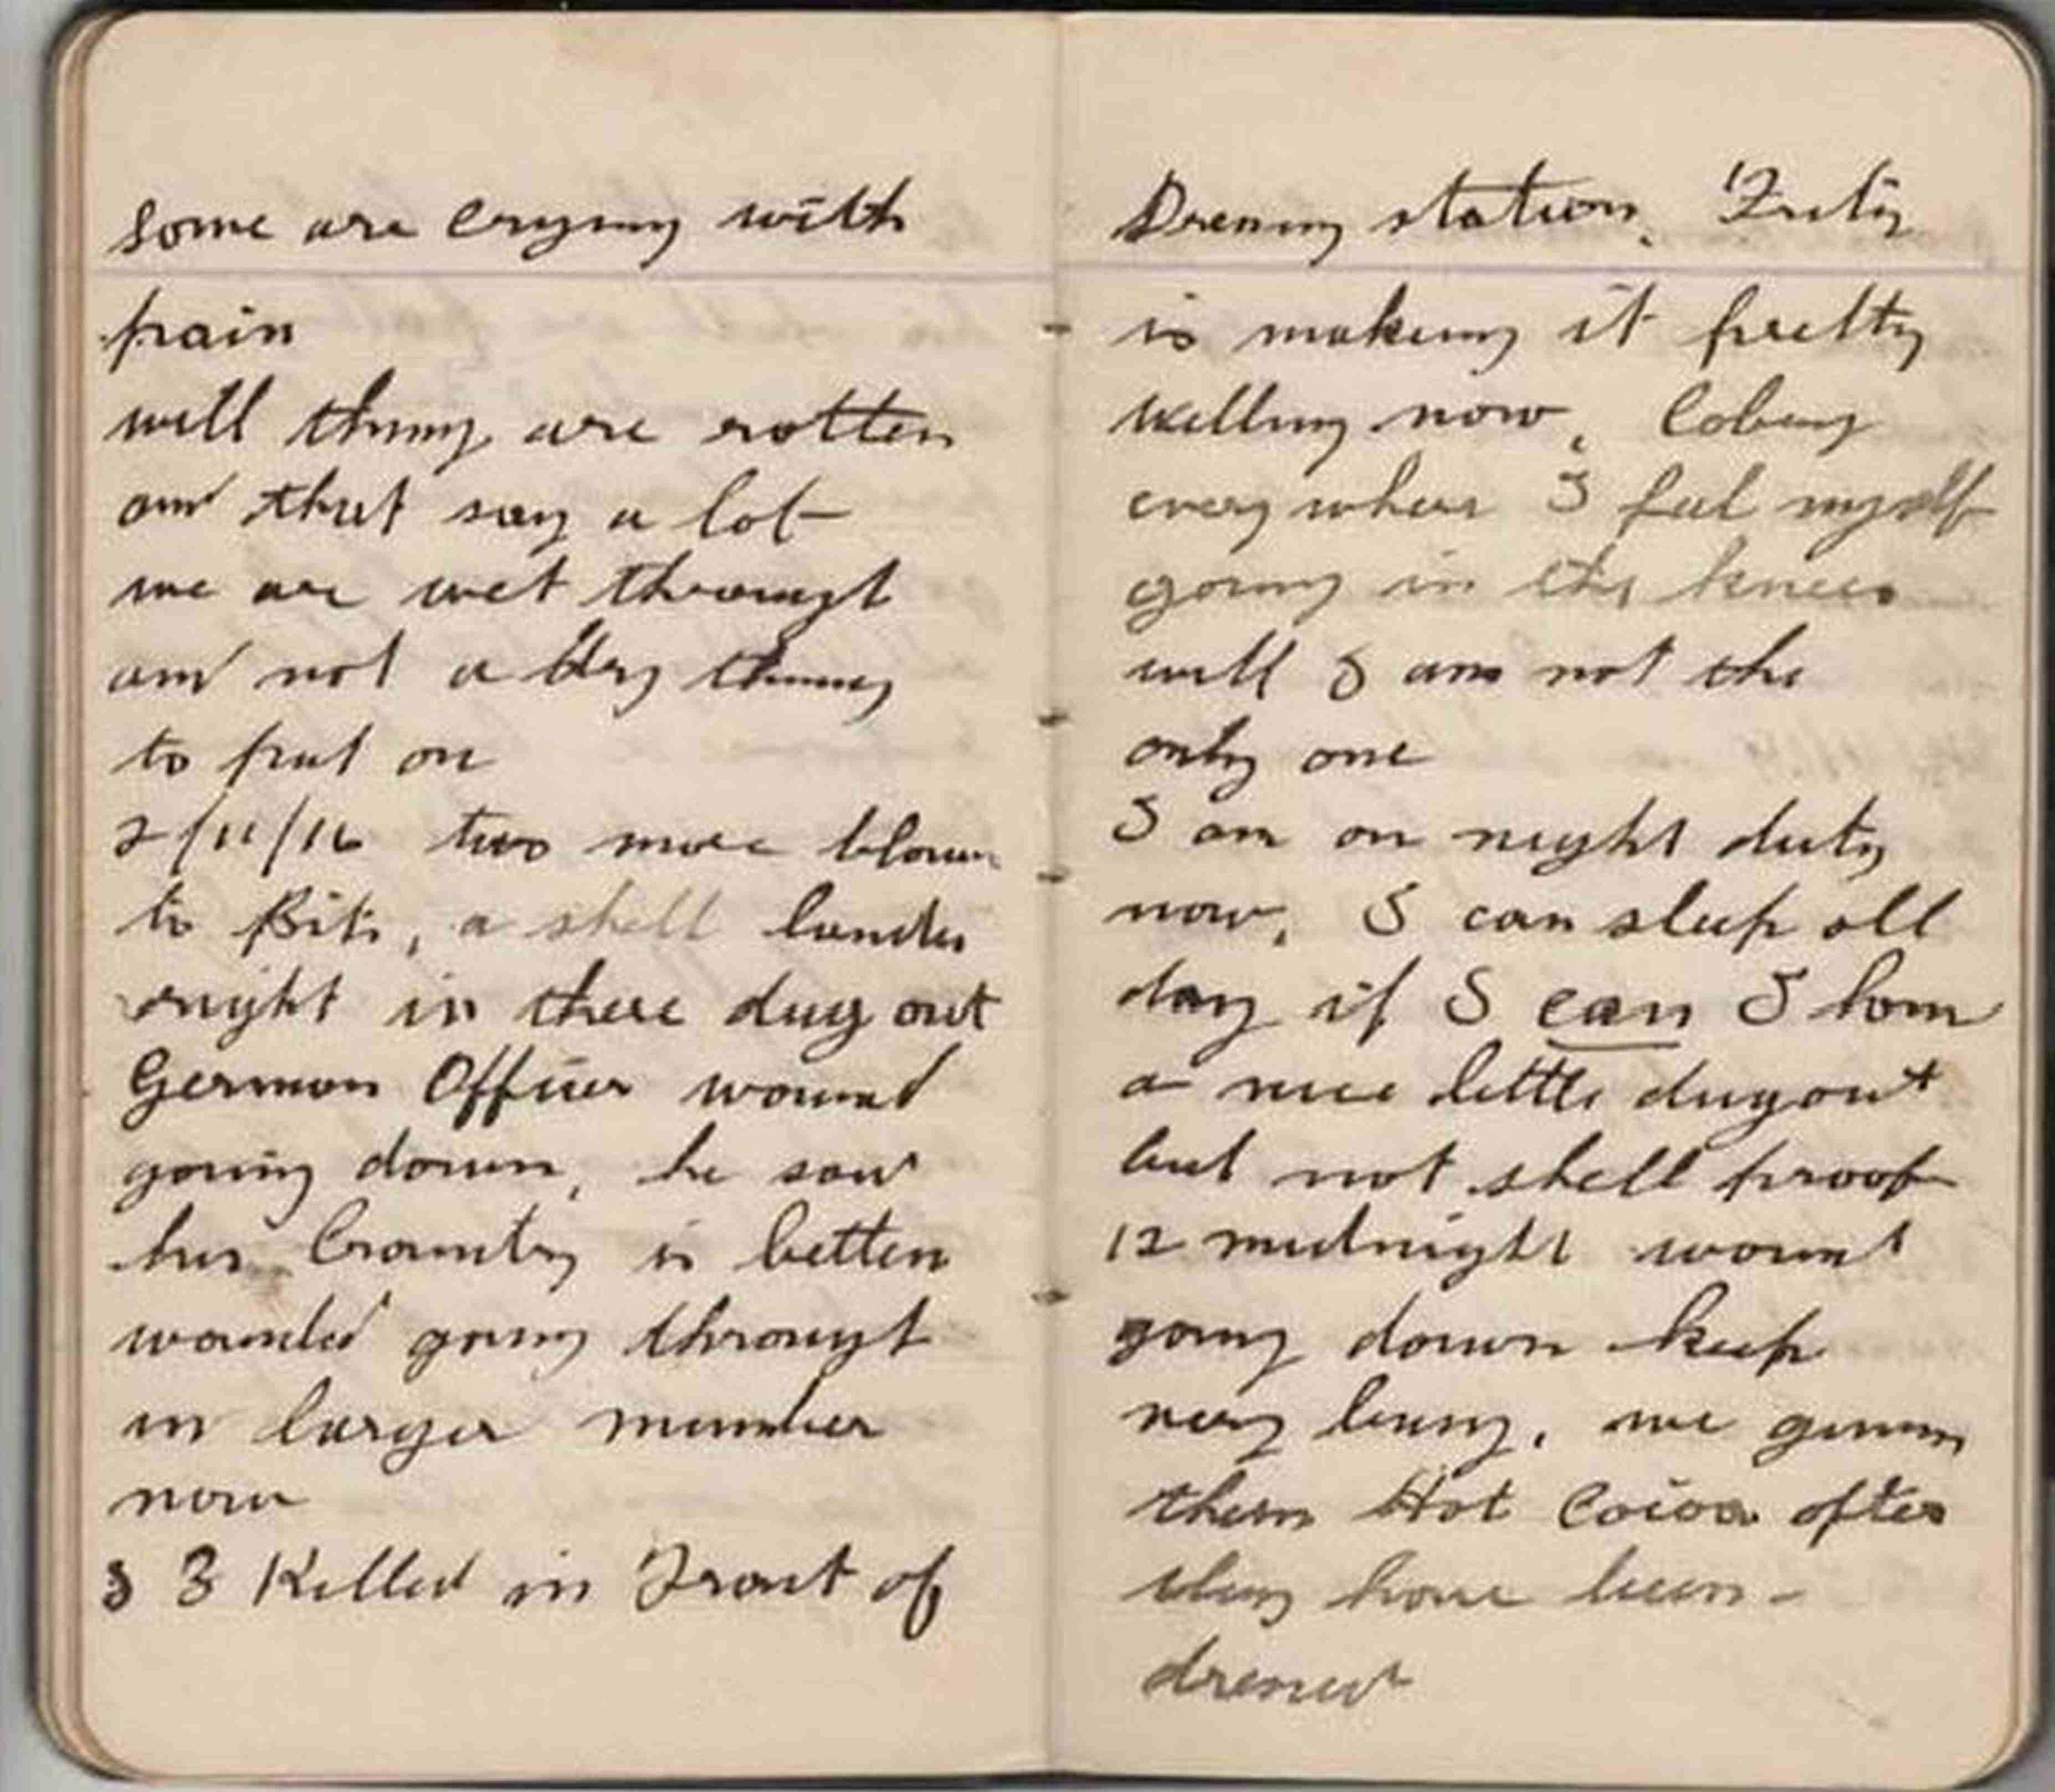 some are crying with
pain
well thing are rotten
and that say a lot
we are wet througt
and not a dry thing
to put on
2/11/16 two more blown
to Bits, a shell landes
right in there dug out
German Officer wound
going down, he say
his Country is betten
wounded going througt
in larger number
now
3 3 Killed in Front of
Dressing station. Fritz
is making it pretty
willing now,
everywhere I feel myself
going in the knees
well I am not the
only one
I am on night duty
now, I can sleep all
day if I can I have
a nice little dugout
but not shell proof
12 midnight wound
going down keep
very busy, we given
them Hot Cocoa after
they have been
dressed